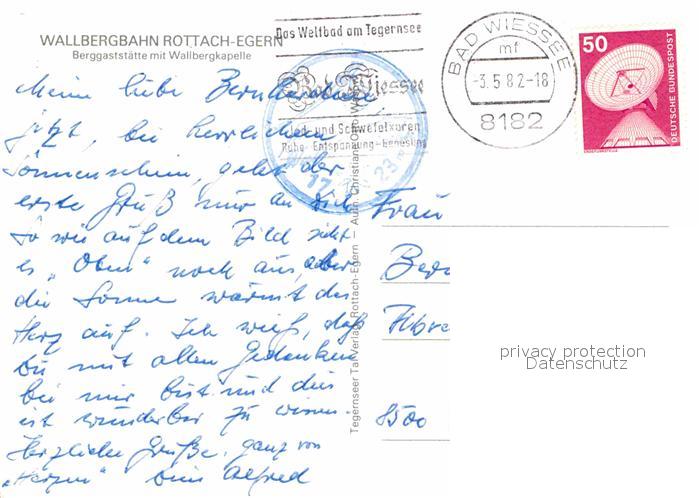 WALLBERGBAHN ROTTACH-EGERN
Berggaststätte mit Wallbergkapelle
Das Weltbad am Tegernsee
Bad Wiessee
Jod- und Schwefelkuren
Ruhe-Entspannung-Genesung
BAD WIESSEE
mf
-3.5.82-18
8182
50
DEUTSCHE BUNDESPOST
Meine liebe
jetzt, bei herrlichem
Sonnenschein, geht der
erste Gruß nur an Dich
So wie auf dem Bild sieht
es „Oben" noch aus, aber
die Sonne wärmt das
Herz auf. Ich weiß, daß
Du mit allen Gedanken
bei mir bist und dies
ist wunderbar zu wissen.
Herzliche Grüße, ganz von
„Herzen" Dein Alfred
Tegernseer Tal Verlag, Rottach-Egern — Aufn. Christiane
Frau
Bern
Fibre
8500
privacy protection
Datenschutz